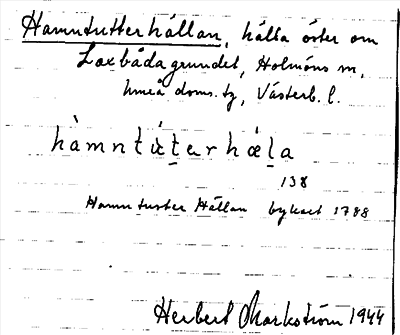 Hamntutterhällan, hälla öster om
Laxbådagrundet, Holmöns sn,
Umeå doms. tg, Västerb. l.
hàmntútarhæla
138
Hamn tutter Hällan bykart 1788
Herbert Markström 1944